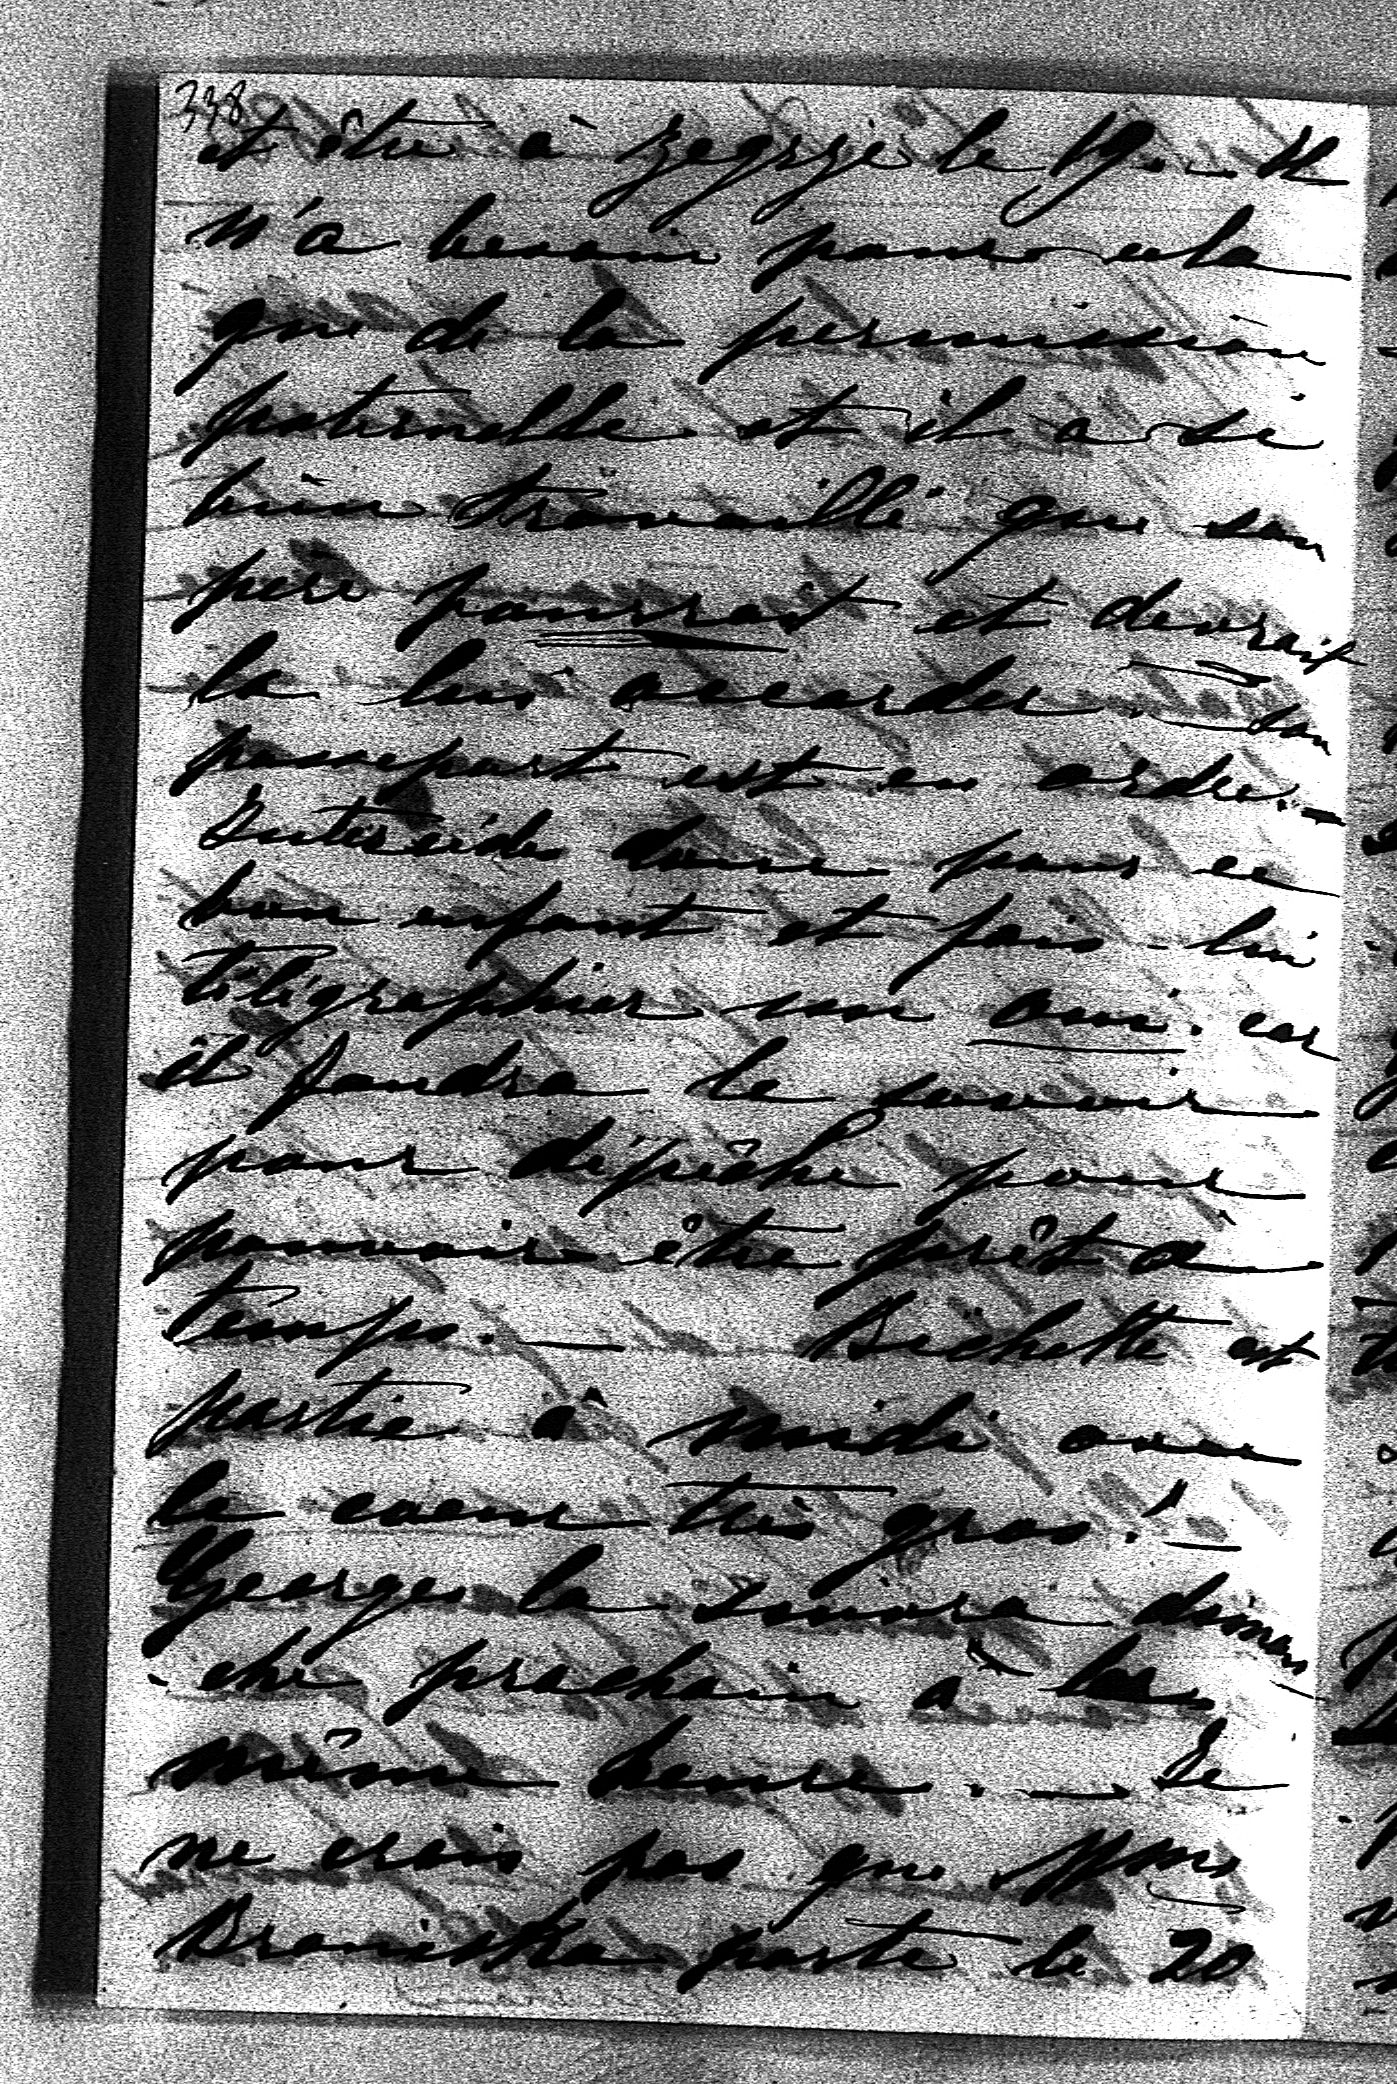 338
et être à Zegrzé le 19. — Il
n'a besoin pour cela
que de la permission
paternelle et il a si
bien travaillé que son
père pourrait et devrait
la lui accorder. — Son
passeport est en ordre. —
Intercède donc pour ce
bon enfant et fais-lui
télégraphier un oui. car
il faudra le savoir
pour dépêche pour
pouvoir être prêt à
temps. — Bichette est
partie à midi avec
le coeur très gros! —
Georges la suivra diman
-che prochain à la
même heure. — Je
ne crois pas que Mme
Branicka parte le 20